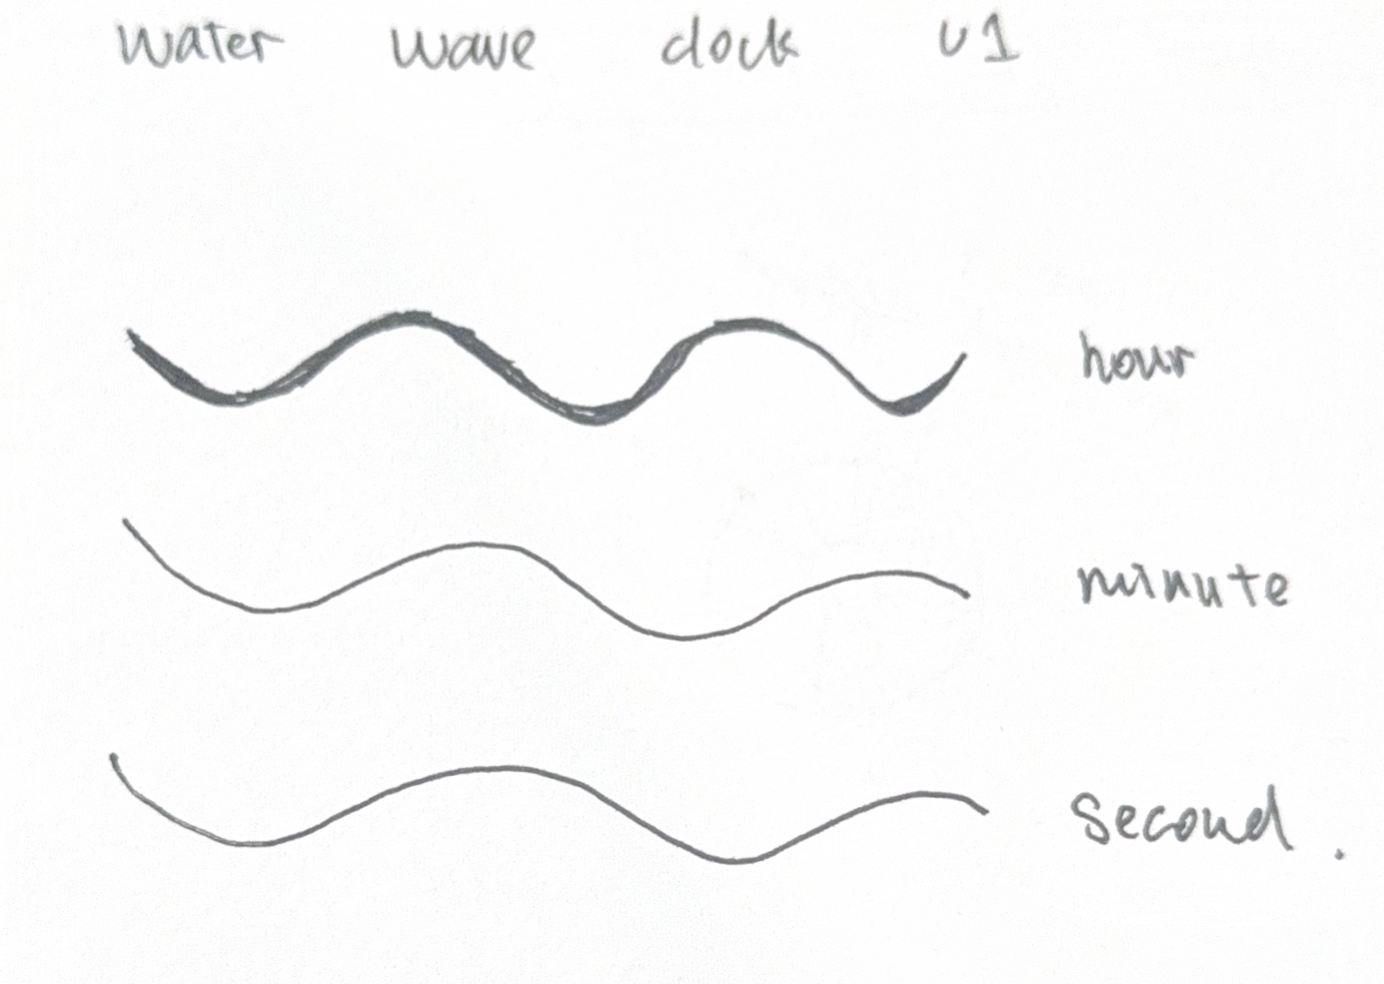 water wave clock v1
hour
minute
second.